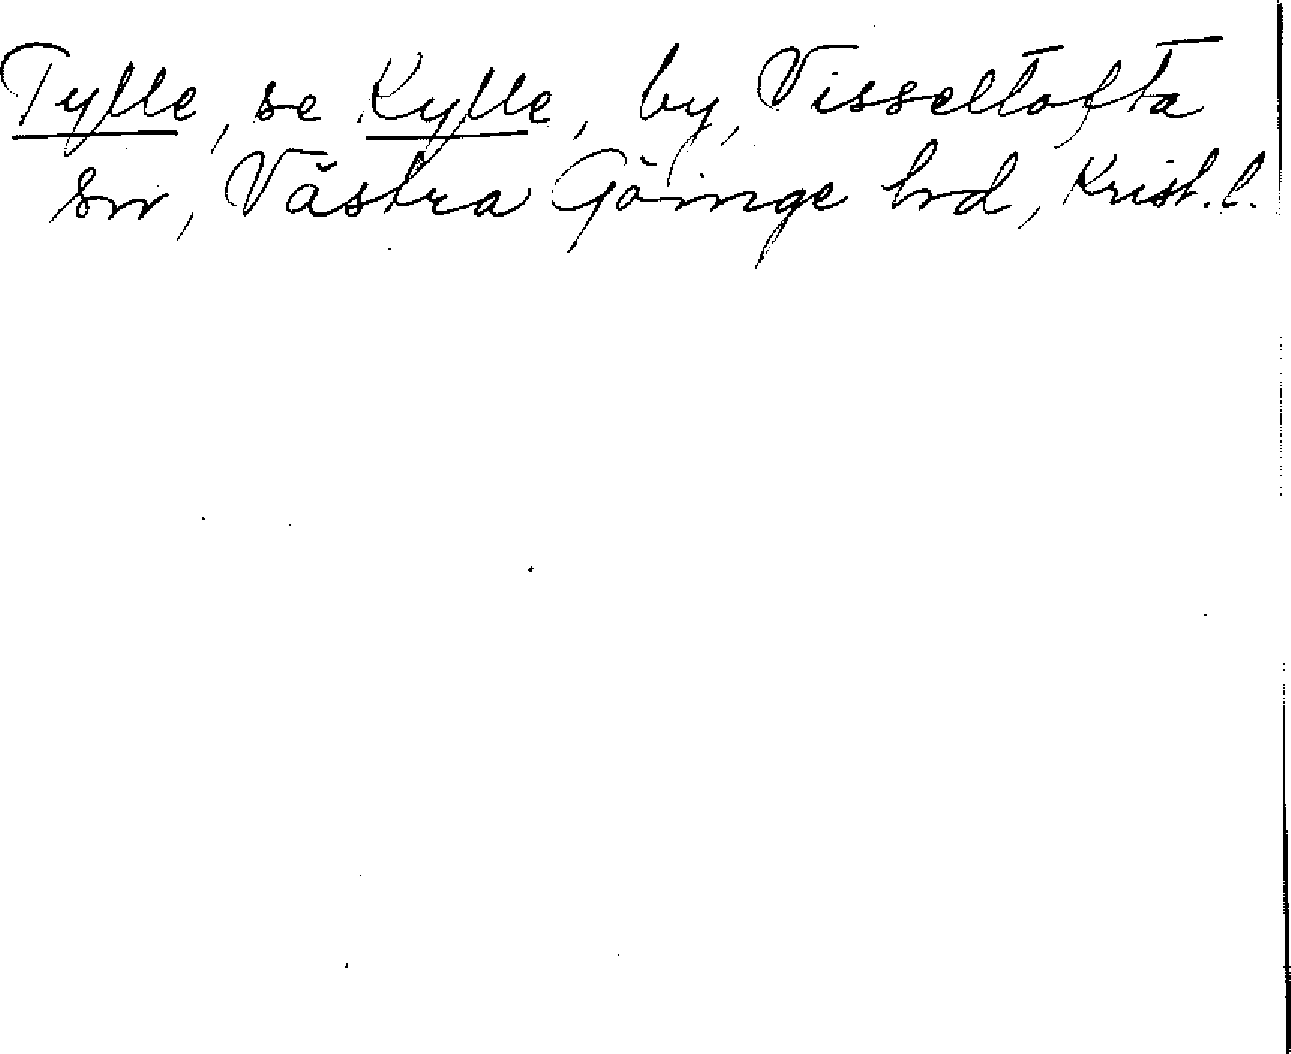 Tylle, se Kylle, by, Visseltofta
sn, Västra Göinge hd, Krist. l.